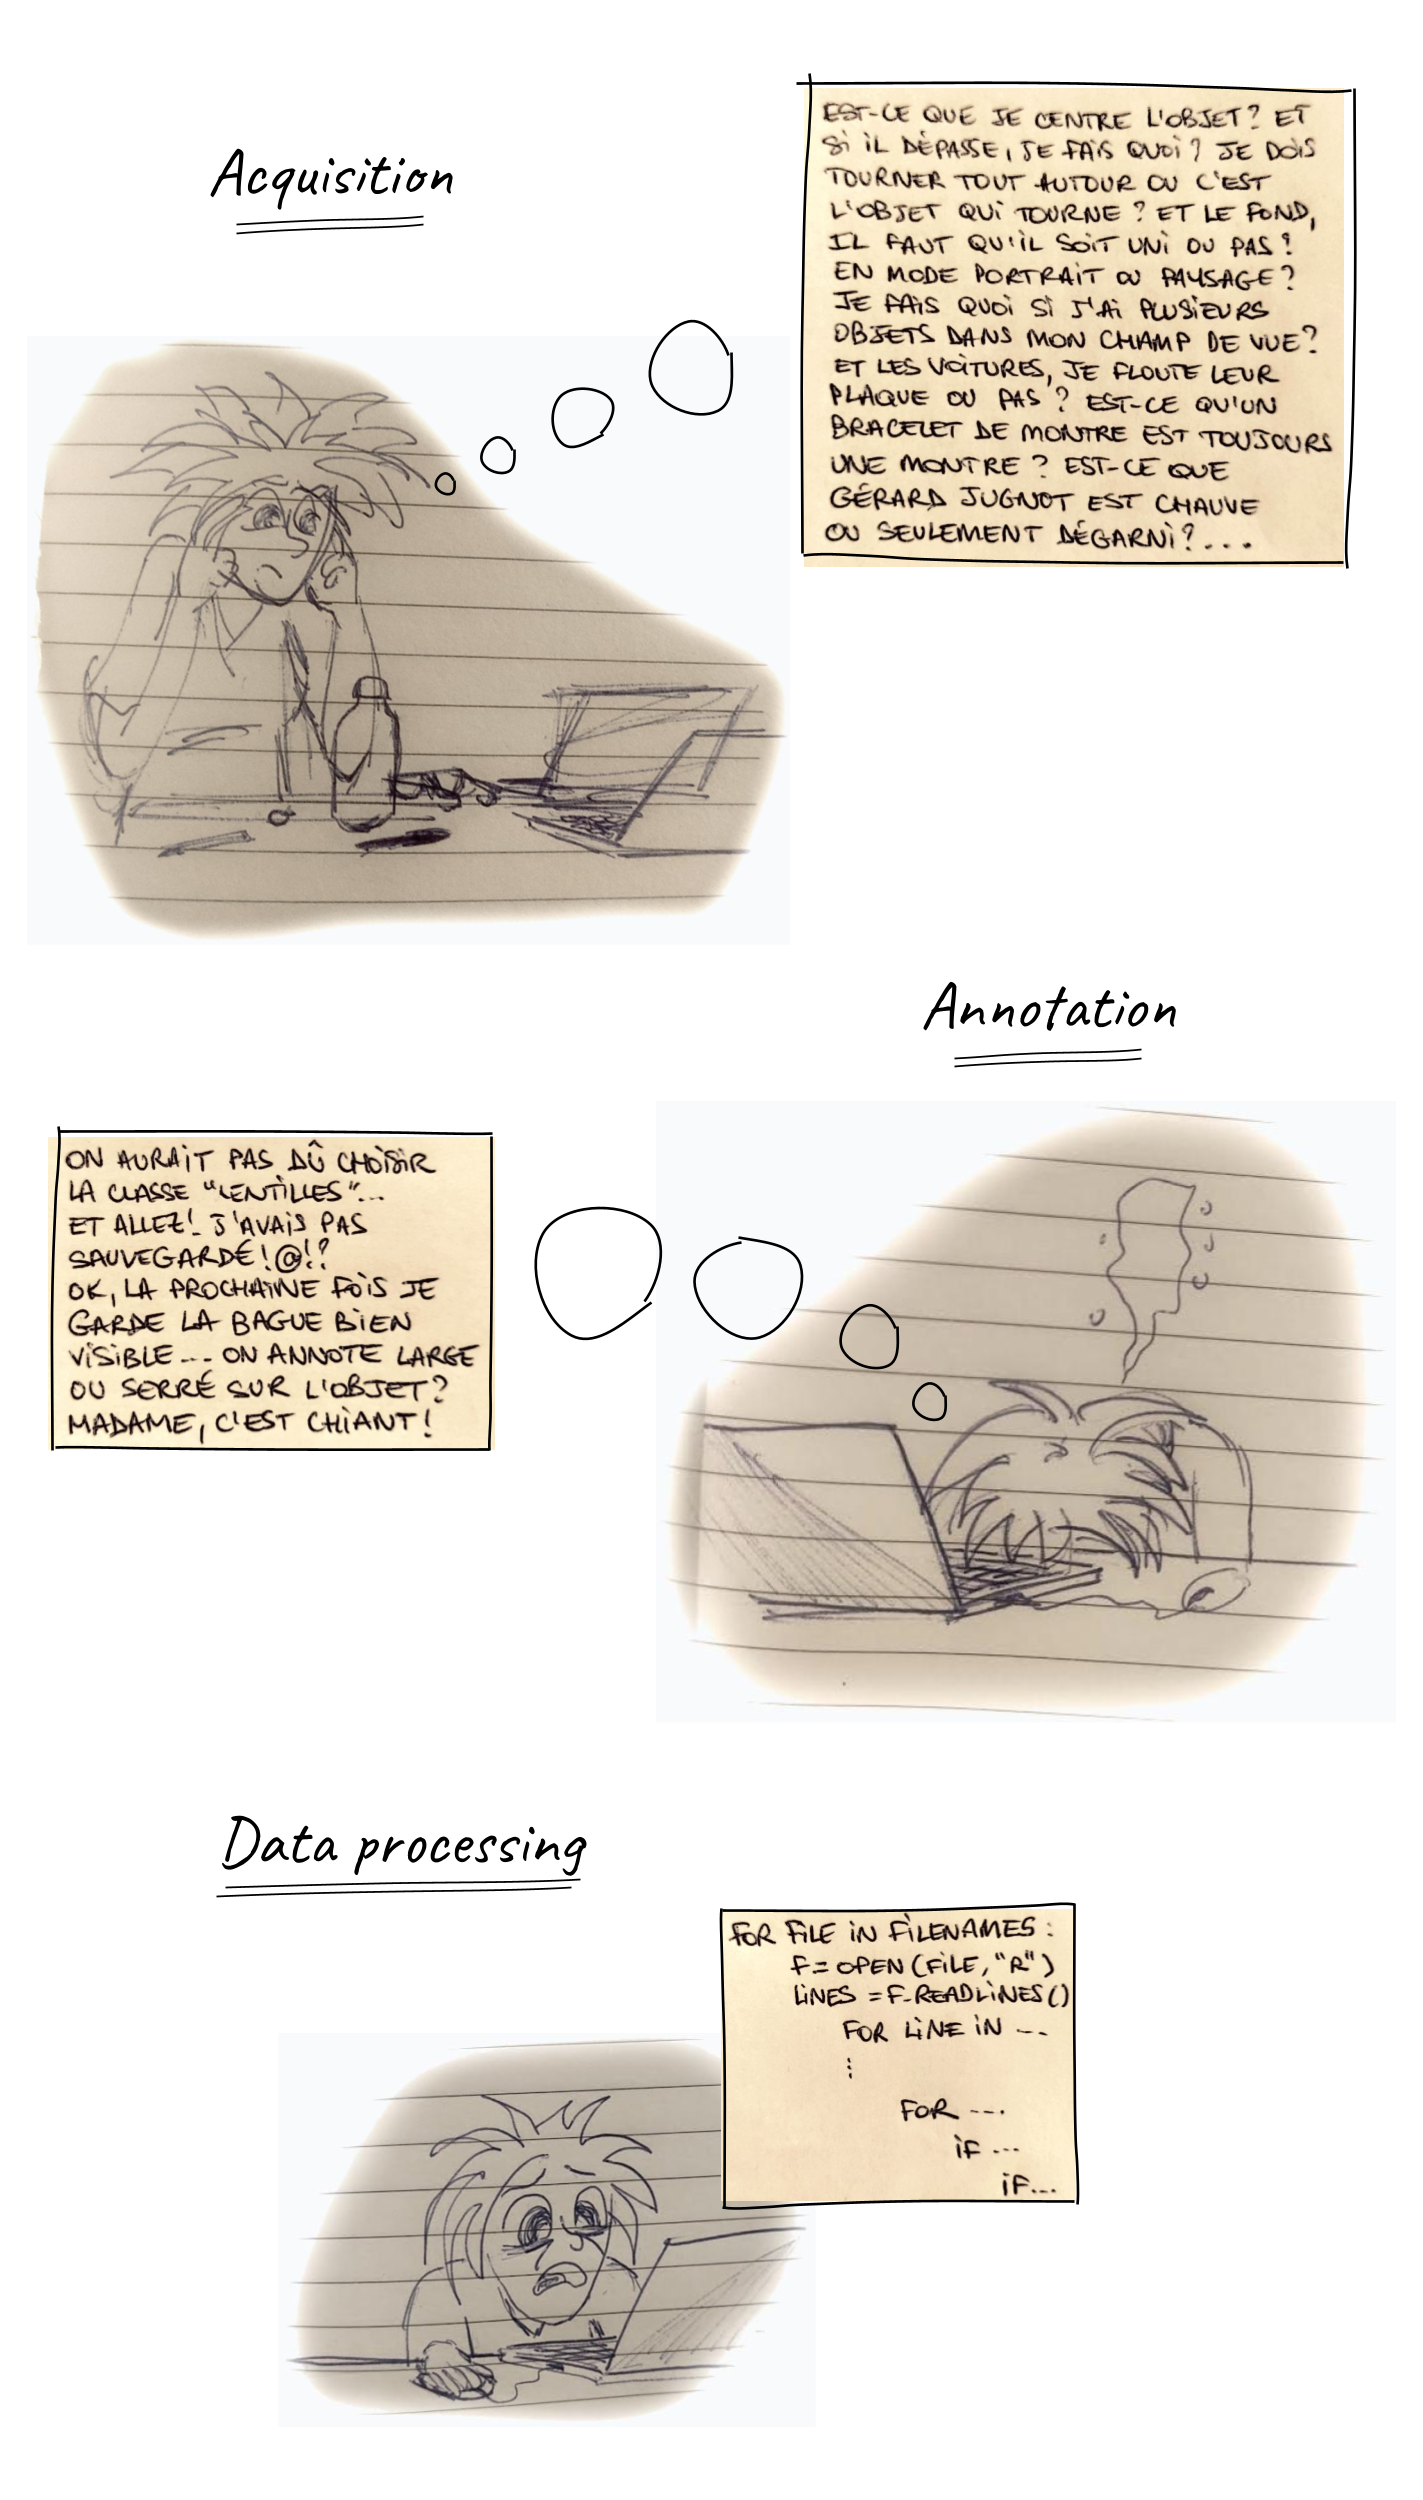 Acquisition
EST-CE QUE JE CENTRE L'OBJET? ET
Si iL DÉPASSE, JE FAiS QUOi? JE DOiS
TOURNER TOUT AUTOUR OU C'EST
L'OBJET QUi TOURNE? ET LE FOND,
IL FAUT QU'iL SOiT UNi OU PAS?
EN MODE PORTRAiT OU PAYSAGE?
JE FAiS QUOi Si J'Ai PLUSiEURS
OBJETS DANS MON CHAMP DE VUE?
ET LES VOiTURES, JE FLOUTE LEUR
PLAQUE OU PAS? EST-CE QU'UN
BRACELET DE MONTRE EST TOUJOURS
UNE MONTRE? EST-CE QUE
GÉRARD JUGNOT EST CHAUVE
OU SEULEMENT DÉGARNi?...
Annotation
ON AURAiT PAS DÛ CHOiSiR
LA CLASSE "LENTiLLES"...
ET ALLEZ! J'AVAiS PAS
SAUVEGARDÉ!@!?
OK, LA PROCHAiNE FOiS JE
GARDE LA BAGUE BiEN
ViSiBLE... ON ANNOTE LARGE
OU SERRÉ SUR L'OBJET?
MADAME, C'EST CHiANT!
Data processing
FOR FiLE iN FiLENAMES:
F= OPEN(FiLE,"R")
LiNES =F.READLiNES()
FOR LiNE iN ...
⋮
FOR ....
iF ...
iF...